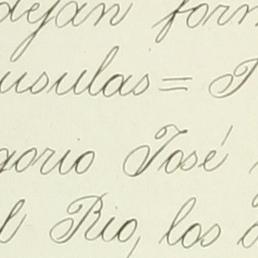 dejan form
usulas = T
gorio José
l Rio, los d